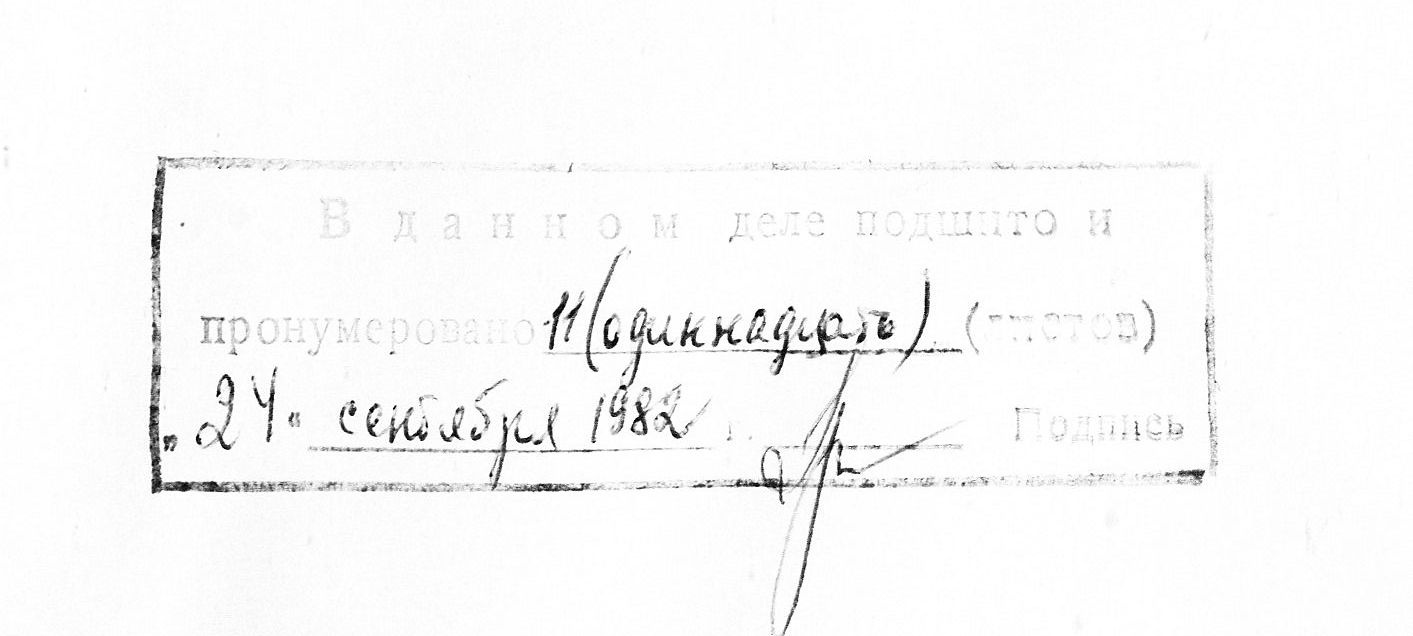 В данном деле подшито и
пронумеровано 11 (одиннадцать) (листов)
„24“ сентября 1982 г. Подпись